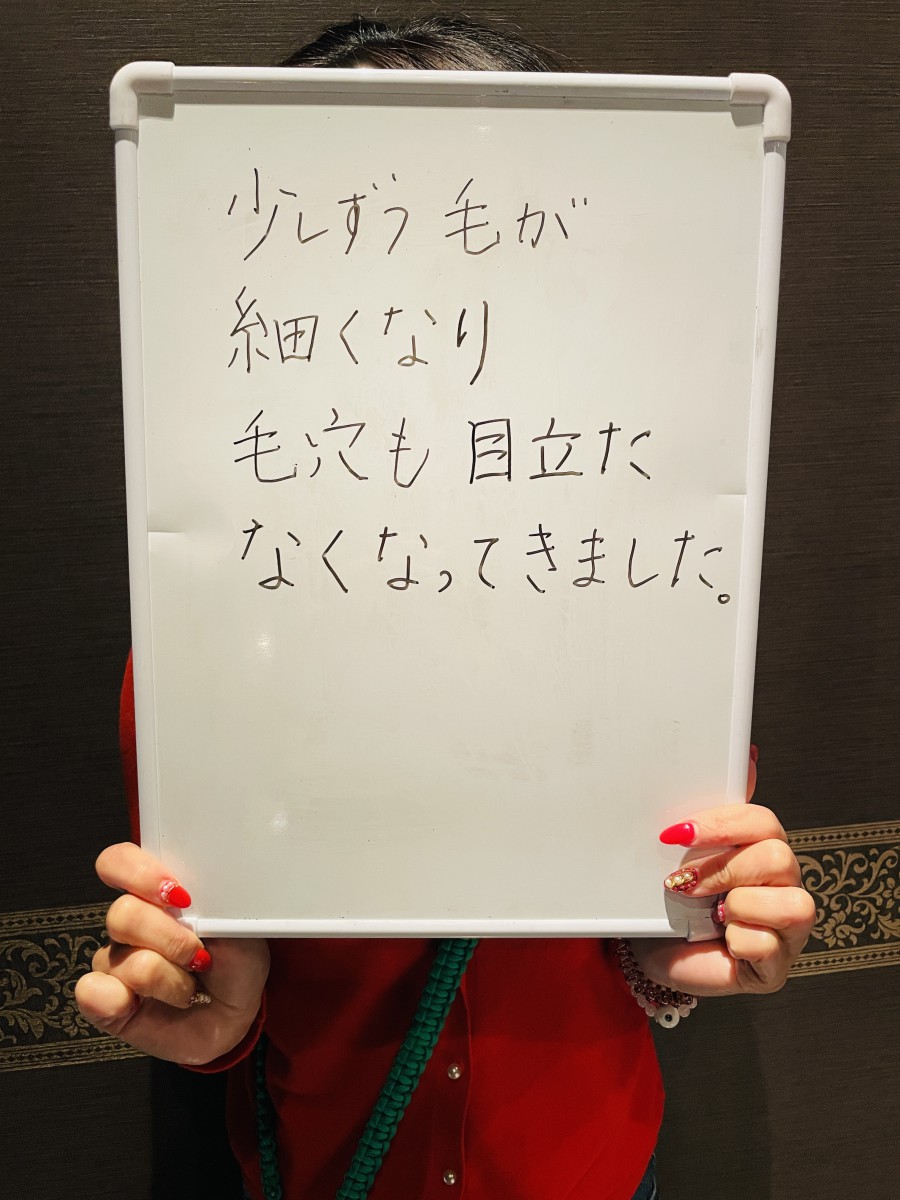 少しずつ毛が
細くなり
毛穴も目立た
なくなってきました。